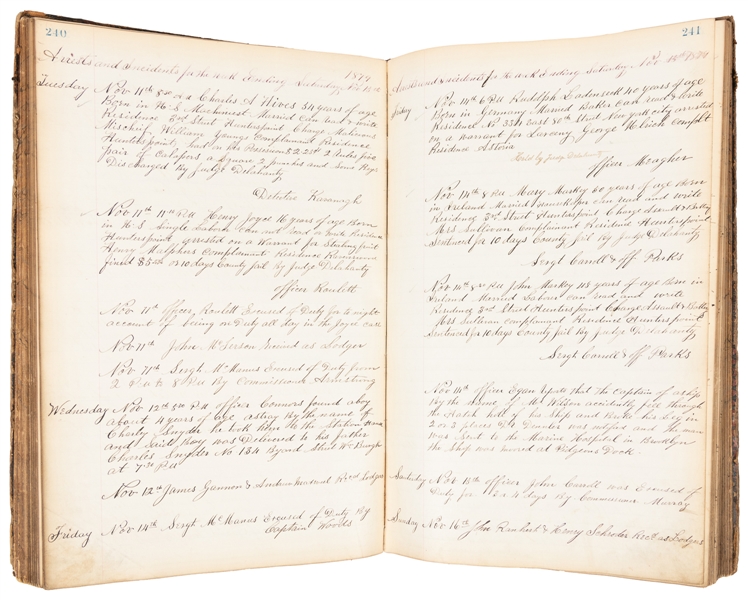 240
Arrests and Incidents for the week Ending Saturday Nov 1879
Tuesday Nov 11th 8 30 A.M Charles A Hives 34 years of age
Born in U.S Machinest Married Can read & write
Residence 3rd Street Hunterspoint Charge Malicious
Mischief William Young Complainant Residence
Hunterspoint, had in his Possession 2 Rules pair
pair of Calapers a Square 2 punches and Some Keys
Discharged By Judge Delehanty
Detective Kavanagh
Nov 11th 11 P.M Henry Joyce 16 years of age Born
in U.S Single Laborer Can not read or write Residence
Hunterspoint, arrested on a Warrant for Stealing
Henry Complainant Residence
fined $5 or 10 days County Jail By Judge Delehanty
officer Rowlett
Nov 11th Officer Rowlett Excused of Duty for to night
account of being on Duty all day in the Joyce case
Nov 11th John McKeson received as Lodger
Nov 11th Sergt McManus Excused of Duty from
2 P.M to 8 P.M By Commissioner Armstrong
Wednesday Nov 12th 5 30 P.M officer Connors found a boy
about 4 years of age astray By the name of
Charley Snyder he took him to the Station House
and Said Boy was Delivered to his father
Charles Snyder No 134 Byard Street Wmsburgh
at 7 30 P.M
Nov 12th James Gannon & Recd as Lodgers
Friday Nov 14th Sergt McManus Excused of Duty By
Captain Woods
241
Arrests and Incidents for the week Ending Saturday Nov 1879
Friday Nov 14th 6 P.M Rudolph 40 years of age
Born in Germany Married Baker can read & write
Residence No 334 East 80th Street New York City arrested
on a warrant for Larceny, George Complt
Residence Astoria
Held by Judge Delehanty
Officer Meagher
Nov 14th 8 P.M Mary Markey 60 years of age Born
in Ireland Married can read and write
Residence 3rd Street Hunterspoint Charge Assault & Battery
Mrs Sullivan Complainant Resident Hunterspoint
Sentenced for 10 days County Jail By Judge Delehanty
Sergt Carroll & Off Parks
Nov 14th 8 P.M John Markey years of age Born in
Ireland Married Labour can read and write
Residence 3rd Street Hunterspoint Charge Assault & Battery
Mrs Sullivan complainant Residence Hunterspoint
Sentenced for 10 days County Jail By Judge Delehanty,
Sergt Carroll & Off Parks
Nov 14th Officer Egan reports that the Captain of a Ship
By the Name of Wilson accidently fell through
the Hatch hall of his Ship and Broke his leg in
2 or 3 places Dr was notified and the man
was Sent to the Marine Hospital in Brooklyn
the Ship was moored at Pidgeons Dock.
Saturday Nov officer John Carroll was Excused of
Duty for 4 days By Commissioner Murray
Sunday Nov 16th John & Henry Schroder Recd as Lodgers